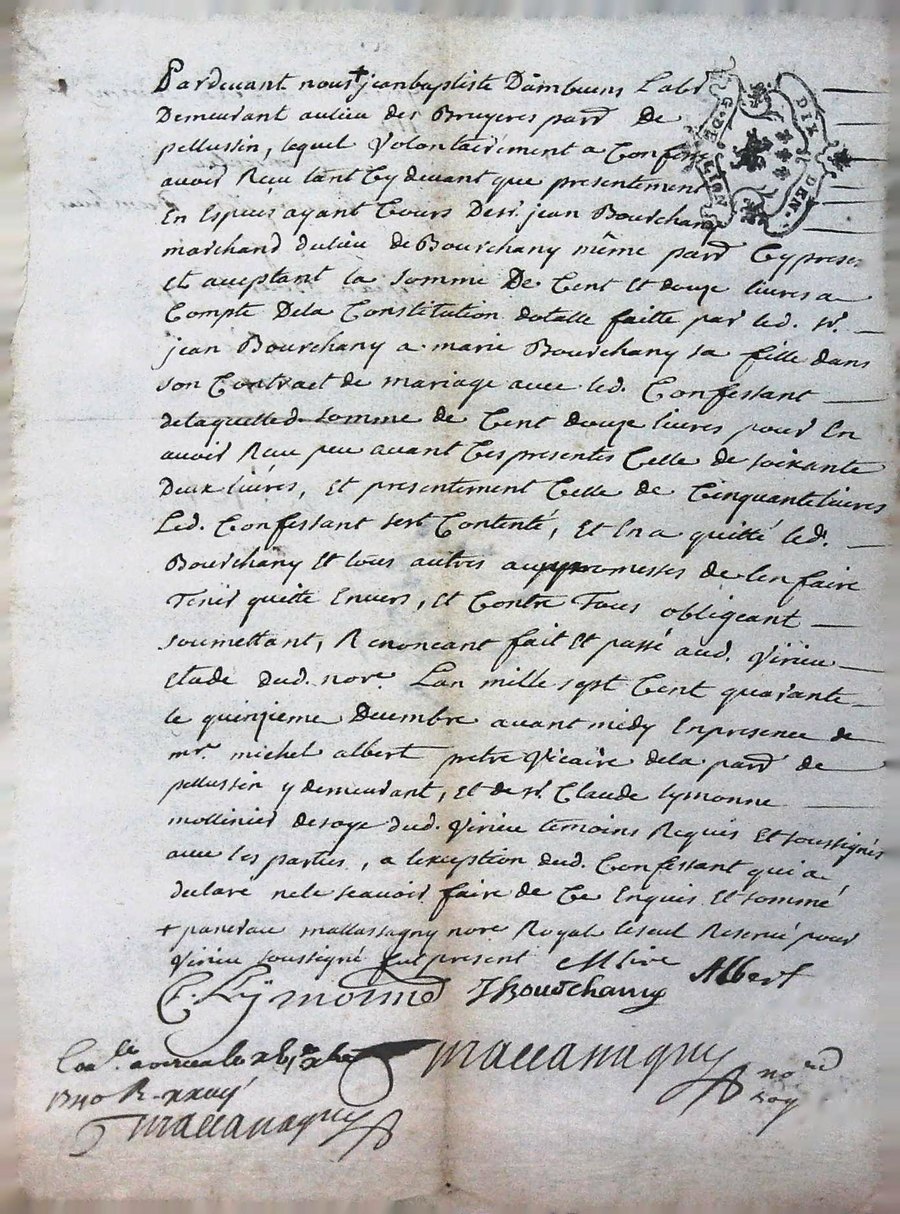 Pardevant nous + jean baptiste Dambuens Labr
G. DE LIO. NUIT
DIX DEN.
Demeurant aulieu des Bruyeres parr De
pellussin, lequel Volontairement a Confess
avoir Recu tant Cy devant que presentement
En Especes ayant Cours De sr. jean Bourchany
marchand dulieu de Bourchany même parr Cy present
et aceptant la somme De Cent Et douze livres a
Compte Dela Constitution dotalle faitte par led. sr.
jean Bourchany a marie Bourchany sa fille dans
son Contract de mariage avec led. Confessant
delaquelled. somme de Cent douze livres pour En
avoir Recu peu avant Ces presentes Celle de soixante
Deux livres, Et presentement Celle de Cinquante livres
Led. Confessant sest Contenté, Et En a quitté led.
Bourchany Et tous autres aux promesses de len faire
Tenir quitte Envers, Et Contre Tous obligeant
soumettant, Renoncant fait Et passé aud. Virieu
Etude dud. nore. Lan mille sept Cent quarante
le quinzieme Decembre avant midy Enpresence de
mr. michel albert pretre Vicaire dela parr de
pellussin y demeurant, Et de sr. Claude Lymonne
mollinier desoye dud. Virieu temoins Requis Et soussignés
avec les parties, a lexception dud. Confessant qui a
declaré nele scavoir faire de Ce Enquis Et sommé
+ pardevant mallassagny nore Royal le seul Reservé pour
Virieu soussigné fut present
C. Lymonne J Bourchany Albert
Mallassagny no.re roy
1740 R. xxvi s
Mallassagny